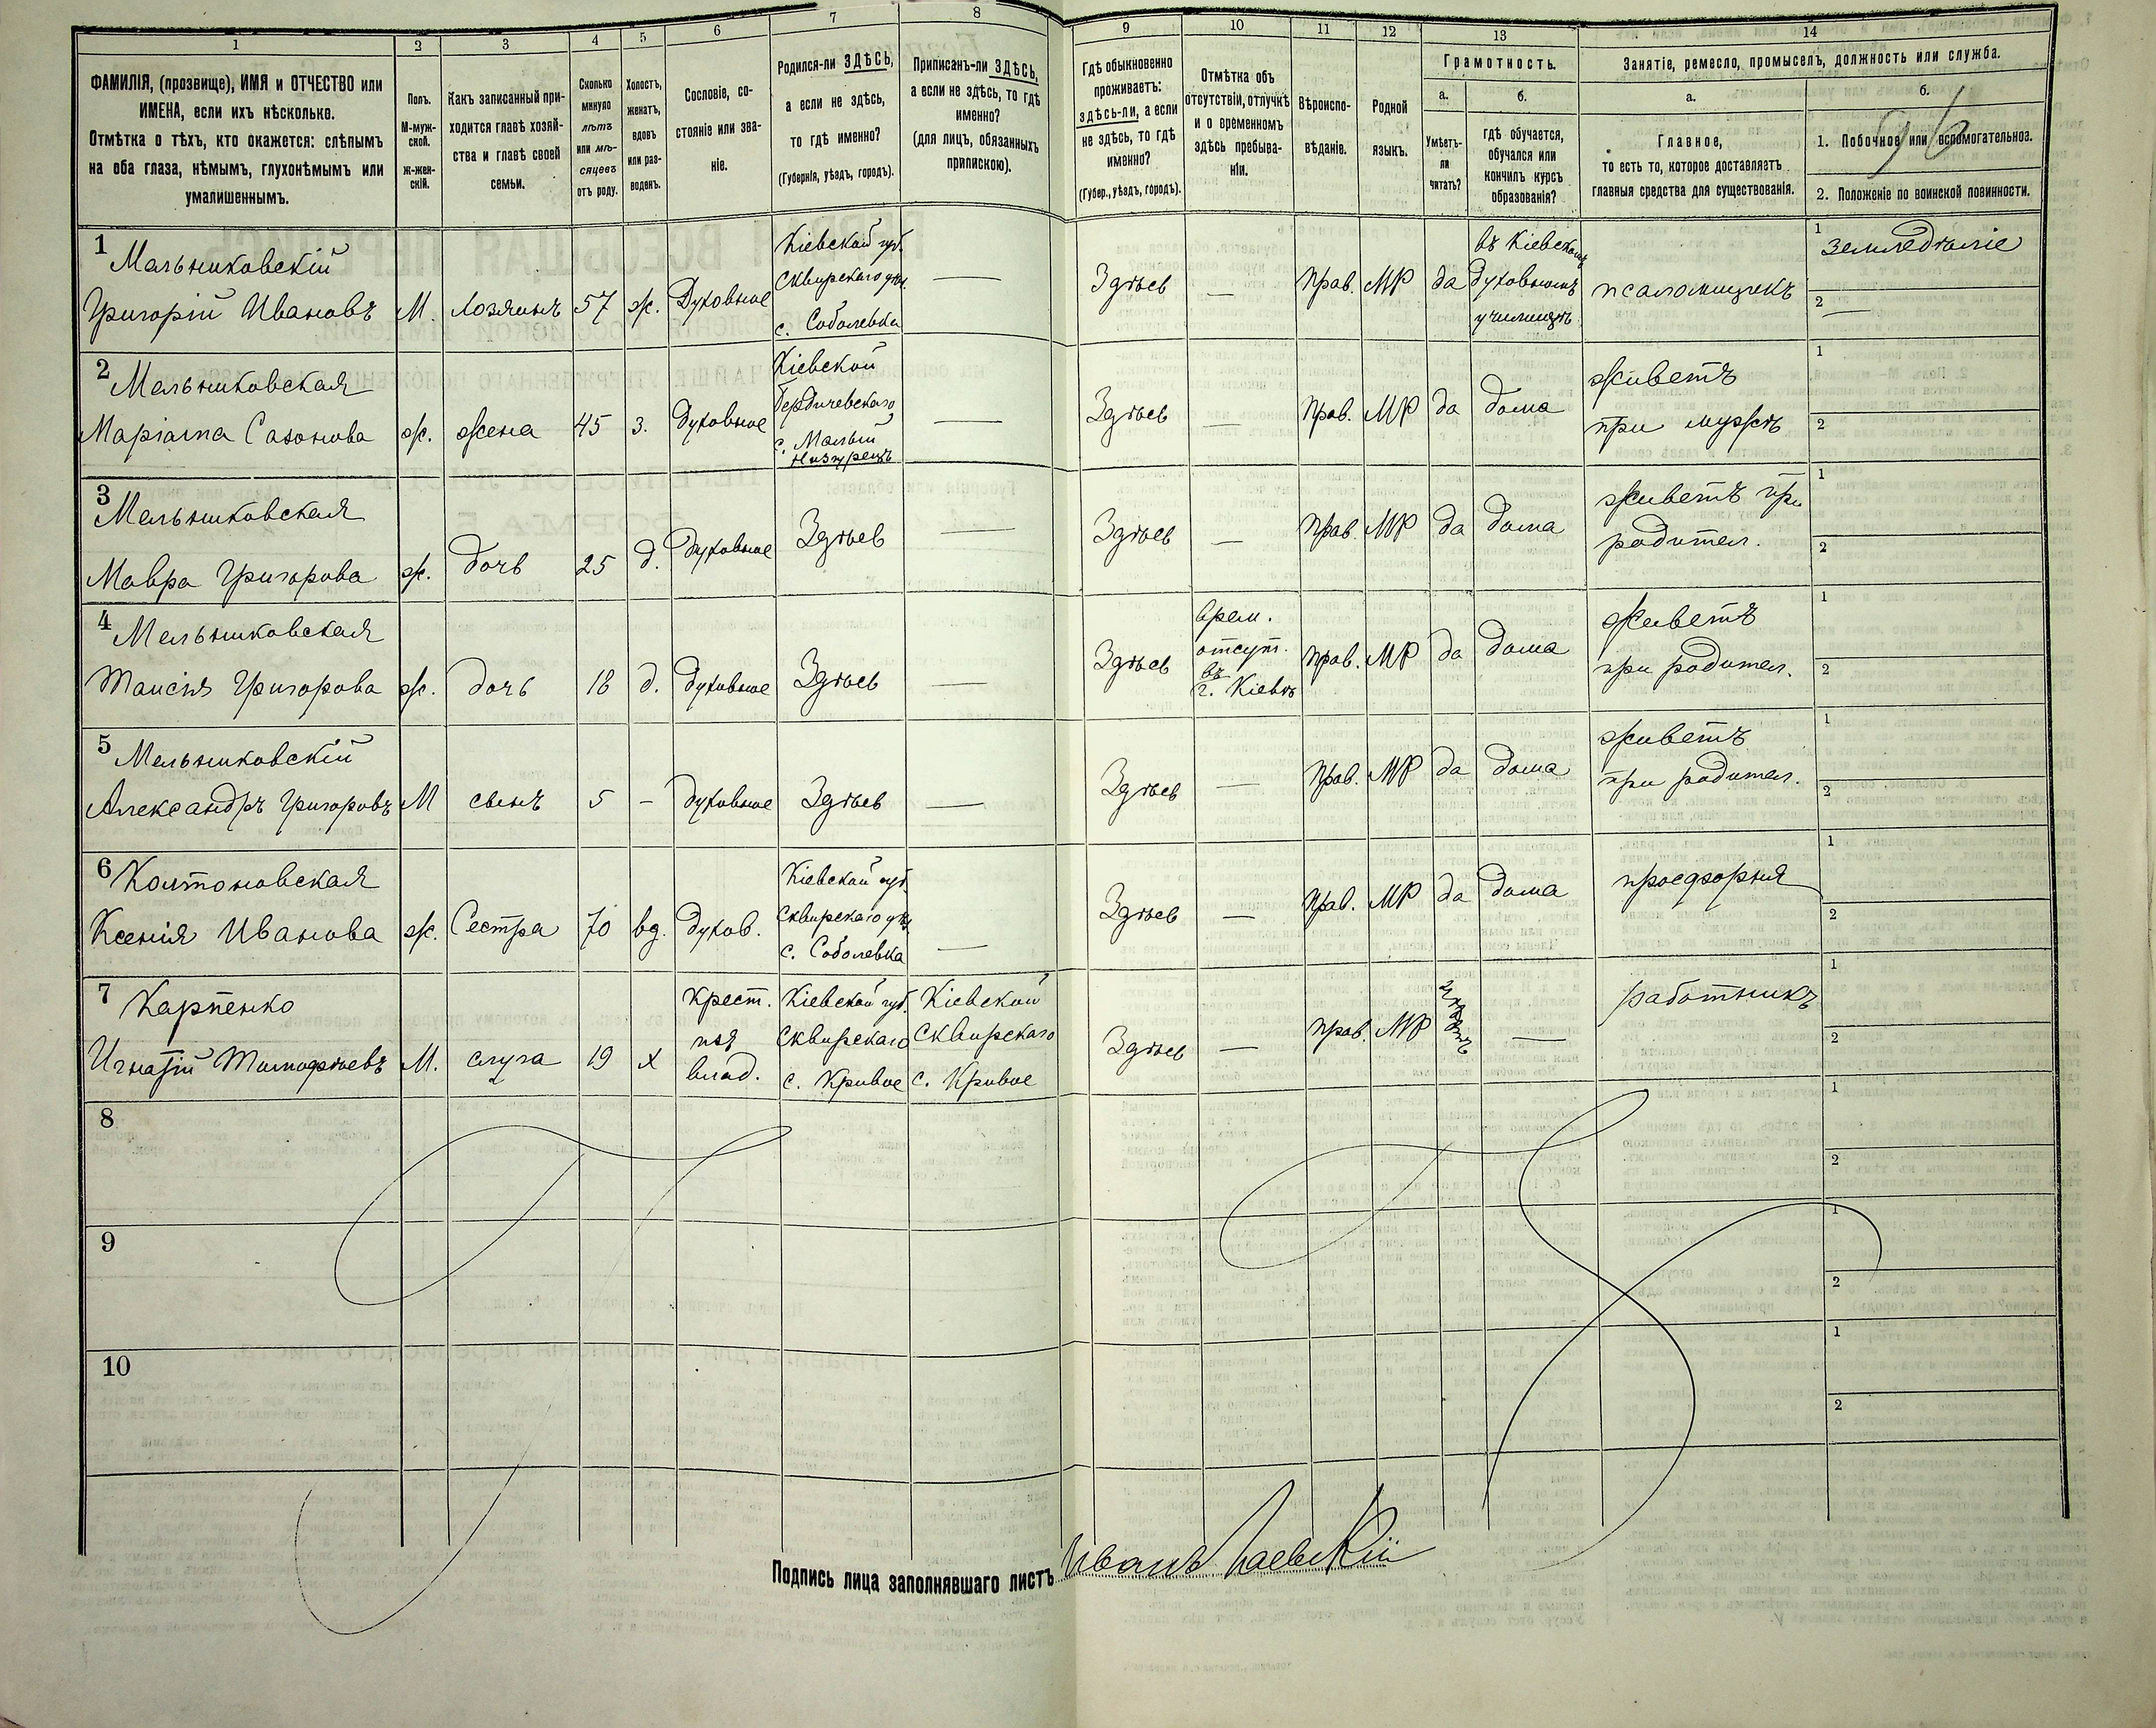 1 2 3 4 5 6 7 8 9 10 11 12 13 14
ФАМИЛІЯ, (прозвище), ИМЯ и ОТЧЕСТВО или
ИМЕНА, если ихъ нѣсколько.
Отмѣтка о тѣхъ, кто окажется: слѣпымъ
на оба глаза, нѣмымъ, глухонѣмымъ или
умалишеннымъ.
Полъ.
М-муж-
ской.
Ж-жен-
скій.
Какъ записанный при-
ходится главѣ хозяй-
ства и главѣ своей
семьи.
Сколько
минуло
лѣтъ
или мѣ-
сяцевъ
отъ роду.
Холостъ,
женатъ,
вдовъ
или раз-
веденъ.
Сословіе, со-
стояніе или зва-
ніе.
Родился-ли ЗДѢСЬ,
а если не здѣсь,
то гдѣ именно?
(Губернія, уѣздъ, городъ).
Приписанъ-ли ЗДѢСЬ,
а если не здѣсь, то гдѣ
именно?
(для лицъ, обязанныхъ
припискою).
Гдѣ обыкновенно
проживаетъ:
здѣсь-ли, а если
не здѣсь, то гдѣ
именно?
(Губер., уѣздъ, городъ).
Отмѣтка объ
отсутствіи, отлучкѣ
и о временномъ
здѣсь пребыва-
ніи.
Вѣроиспо-
вѣданіе.
Родной
языкъ.
Грамотность.
а.
Умѣетъ-
ли
читать?
б.
гдѣ обучается,
обучался или
кончилъ курсъ
образованія?
Занятіе, ремесло, промыселъ, должность или служба.
а.
Главное,
то есть то, которое доставляетъ
главныя средства для существованія.
б.
1. Побочное или вспомогательное.
2. Положеніе по воинской повинности.
96
1 Мельниковскій
Григорій Ивановъ
М. хозяинъ 57 ж. Духовное
Кіевской губ.
Сквирскаго уѣз.
с. Соболевка
—
Здѣсь — Прав. МР да
въ Кіевскомъ
духовномъ
училищѣ
псаломщикъ
1 земледѣліе
2 —
2 Мельниковская
Маріамна Сазонова
ж. жена 45 з. духовное
Кіевской
Бердичевскаго
с. Малый
—
Здѣсь — Прав. МР да дома
живетъ
при мужѣ
1
2
3 Мельниковская
Мавра Григорова
ж. дочь 25 д. духовное Здѣсь —
Здѣсь — Прав. МР да дома
живетъ при
родител.
1
2
4 Мельниковская
Таисія Григорова
ж. дочь 18 д. духовное Здѣсь —
Здѣсь
врем.
отсут.
въ
г. Кіевѣ
прав. МР да дома
живетъ
при родител.
1
2
5 Мельниковскій
Александръ Григоровъ
М сынъ 5 – духовное Здѣсь —
Здѣсь — Прав. МР да дома
живетъ
при родител.
1
2
6 Колтоновская
Ксенія Иванова
ж. Сестра 70 вд. духов.
Кіевской губ.
Сквирскаго уѣз.
с. Соболевка
—
Здѣсь — Прав. МР да дома
просфорня
1
2
7 Карпенко
Игнатій Тимофѣевъ
М. слуга 19 х
крест.
влад.
Кіевской губ.
Сквирскаго
с. Кривое
Кіевской
Сквирскаго
с. Кривое
Здѣсь — прав. МР —
работникъ
1
2
8
1
2
9
1
2
10
1
2
Подпись лица заполнявшаго листъ Иванъ